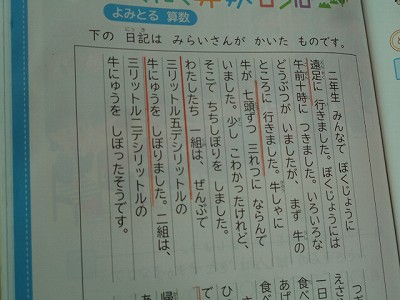 よみとる 算数
下の 日記は みらいさんが かいた ものです。
二年生 みんなで ぼくじょうに
遠足に 行きました。ぼくじょうには
午前十時に つきました。いろいろな
どうぶつが いましたが、まず 牛の
ところに 行きました。牛しゃに
牛が 七頭ずつ 三れつに ならんで
いました。少し こわかったけれど、
そこで ちちしぼりを しました。
わたしたち 一組は、ぜんぶで
三リットル五デシリットルの
牛にゅうを しぼりました。二組は、
三リットル二デシリットルの
牛にゅうを しぼったそうです。